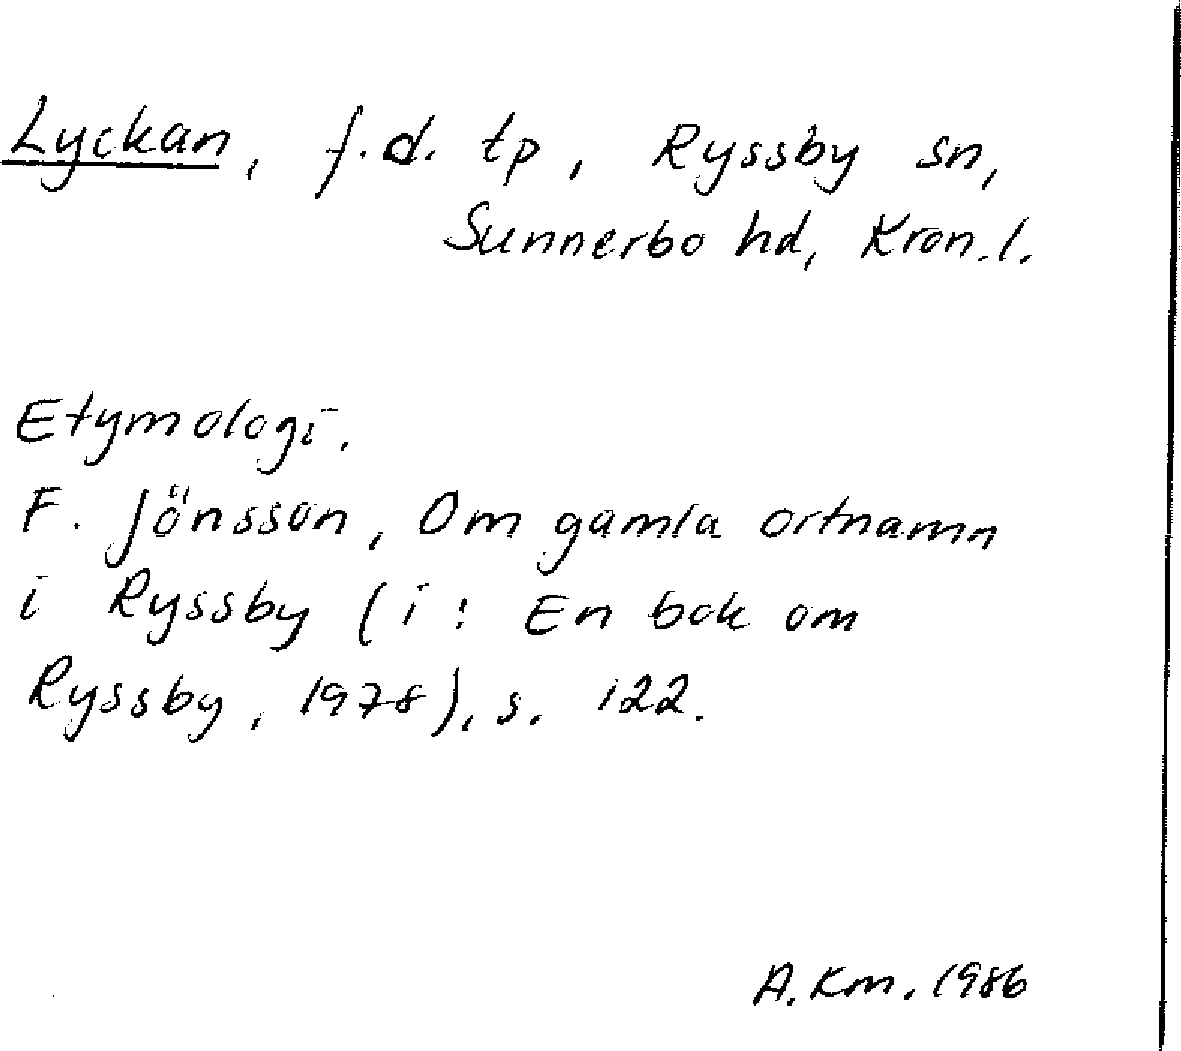 Lyckan, f.d. tp, Ryssby sn,
Sunnerbo hd, Kron.l.
Etymologi.
F. Jönsson, Om gamla ortnamn
i Ryssby (i: En bok om
Ryssby, 1978), s. 122.
A. Km. 1986